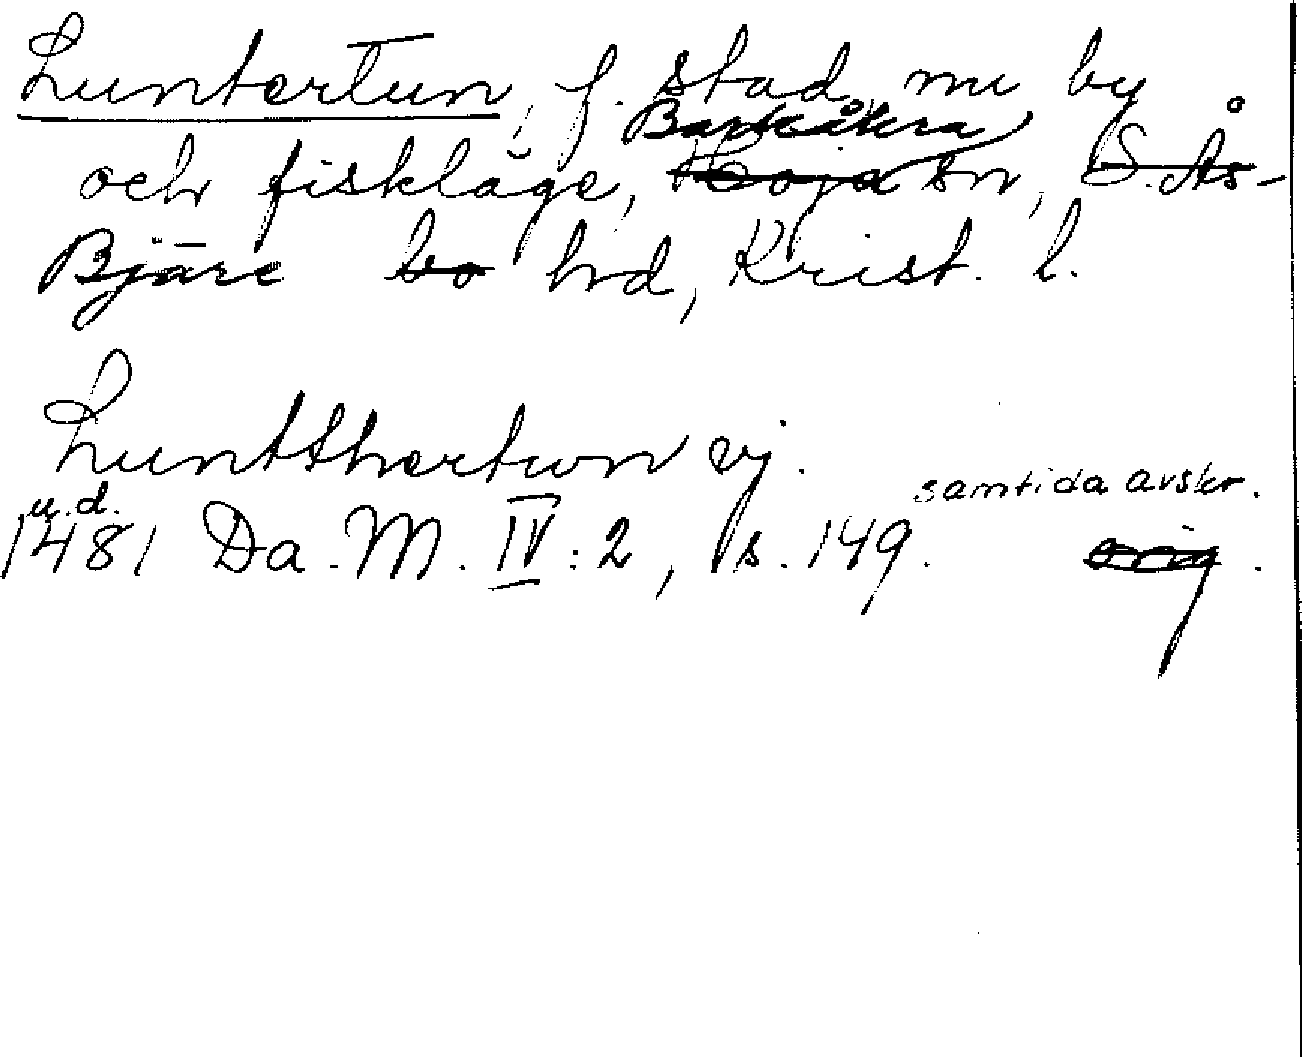 Luntertun, f. stad, nu by
Barkåkra
och fiskläge, Höja sn, S. Ås-
Bjäre bo hd, Krist. l.
Luntthertwn vj.
samtida avskr.
u.d.
1481 Da. M. IV:2, s. 149. orig.